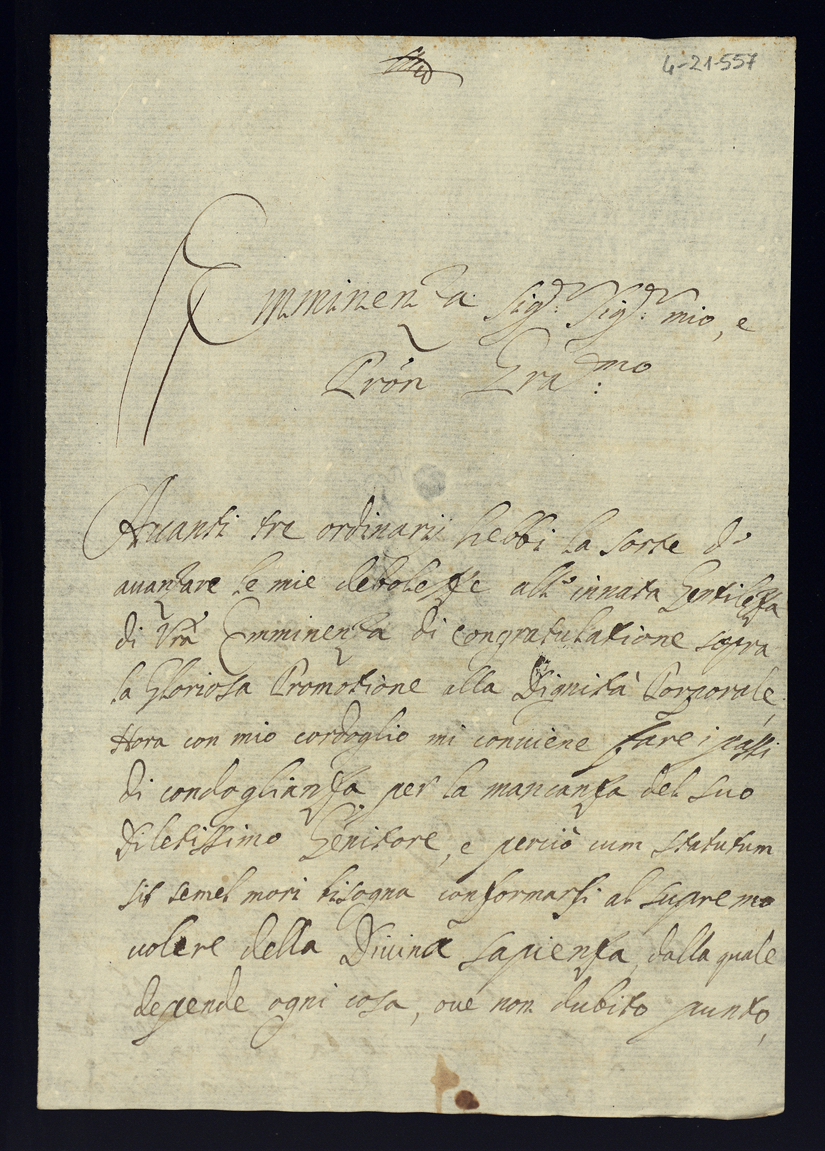 4-21-557
Emminenza Sig.r Sig.r mio, e
Prôn Gra:mo
Auanti tre ordinarij hebbi la sorte di
auanzare le mie debolesse all' innata Gentilezza
di Vrã Emminenza di congratulatione sopra
la Gloriosa Promotione alla Dignità Porporale,
Hora con mio cordoglio mi conuiene fare i passi
di condoglianza per la mancanza del suo
Diletissimo Genitore, e perciò cum statutum
sit semel mori bisogna conformarsi al supremo
uolere della Diuina sapienza, dalla quale
depende ogni cosa, oue non dubito punto,